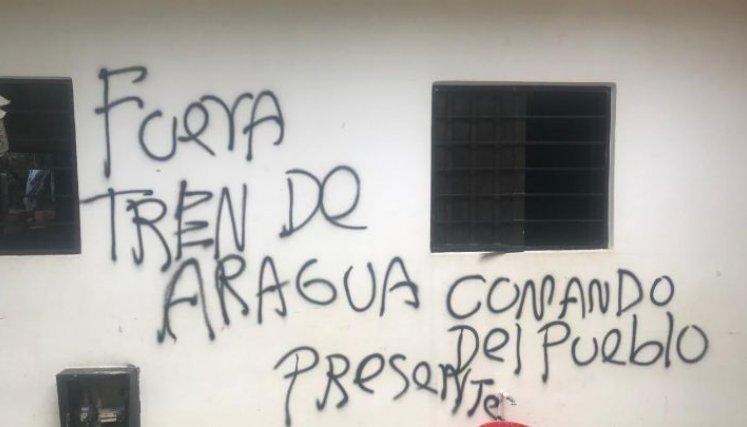 FueRA
TREN De
ARAGUA
COMANDO
Del Pueblo
PReseNTe